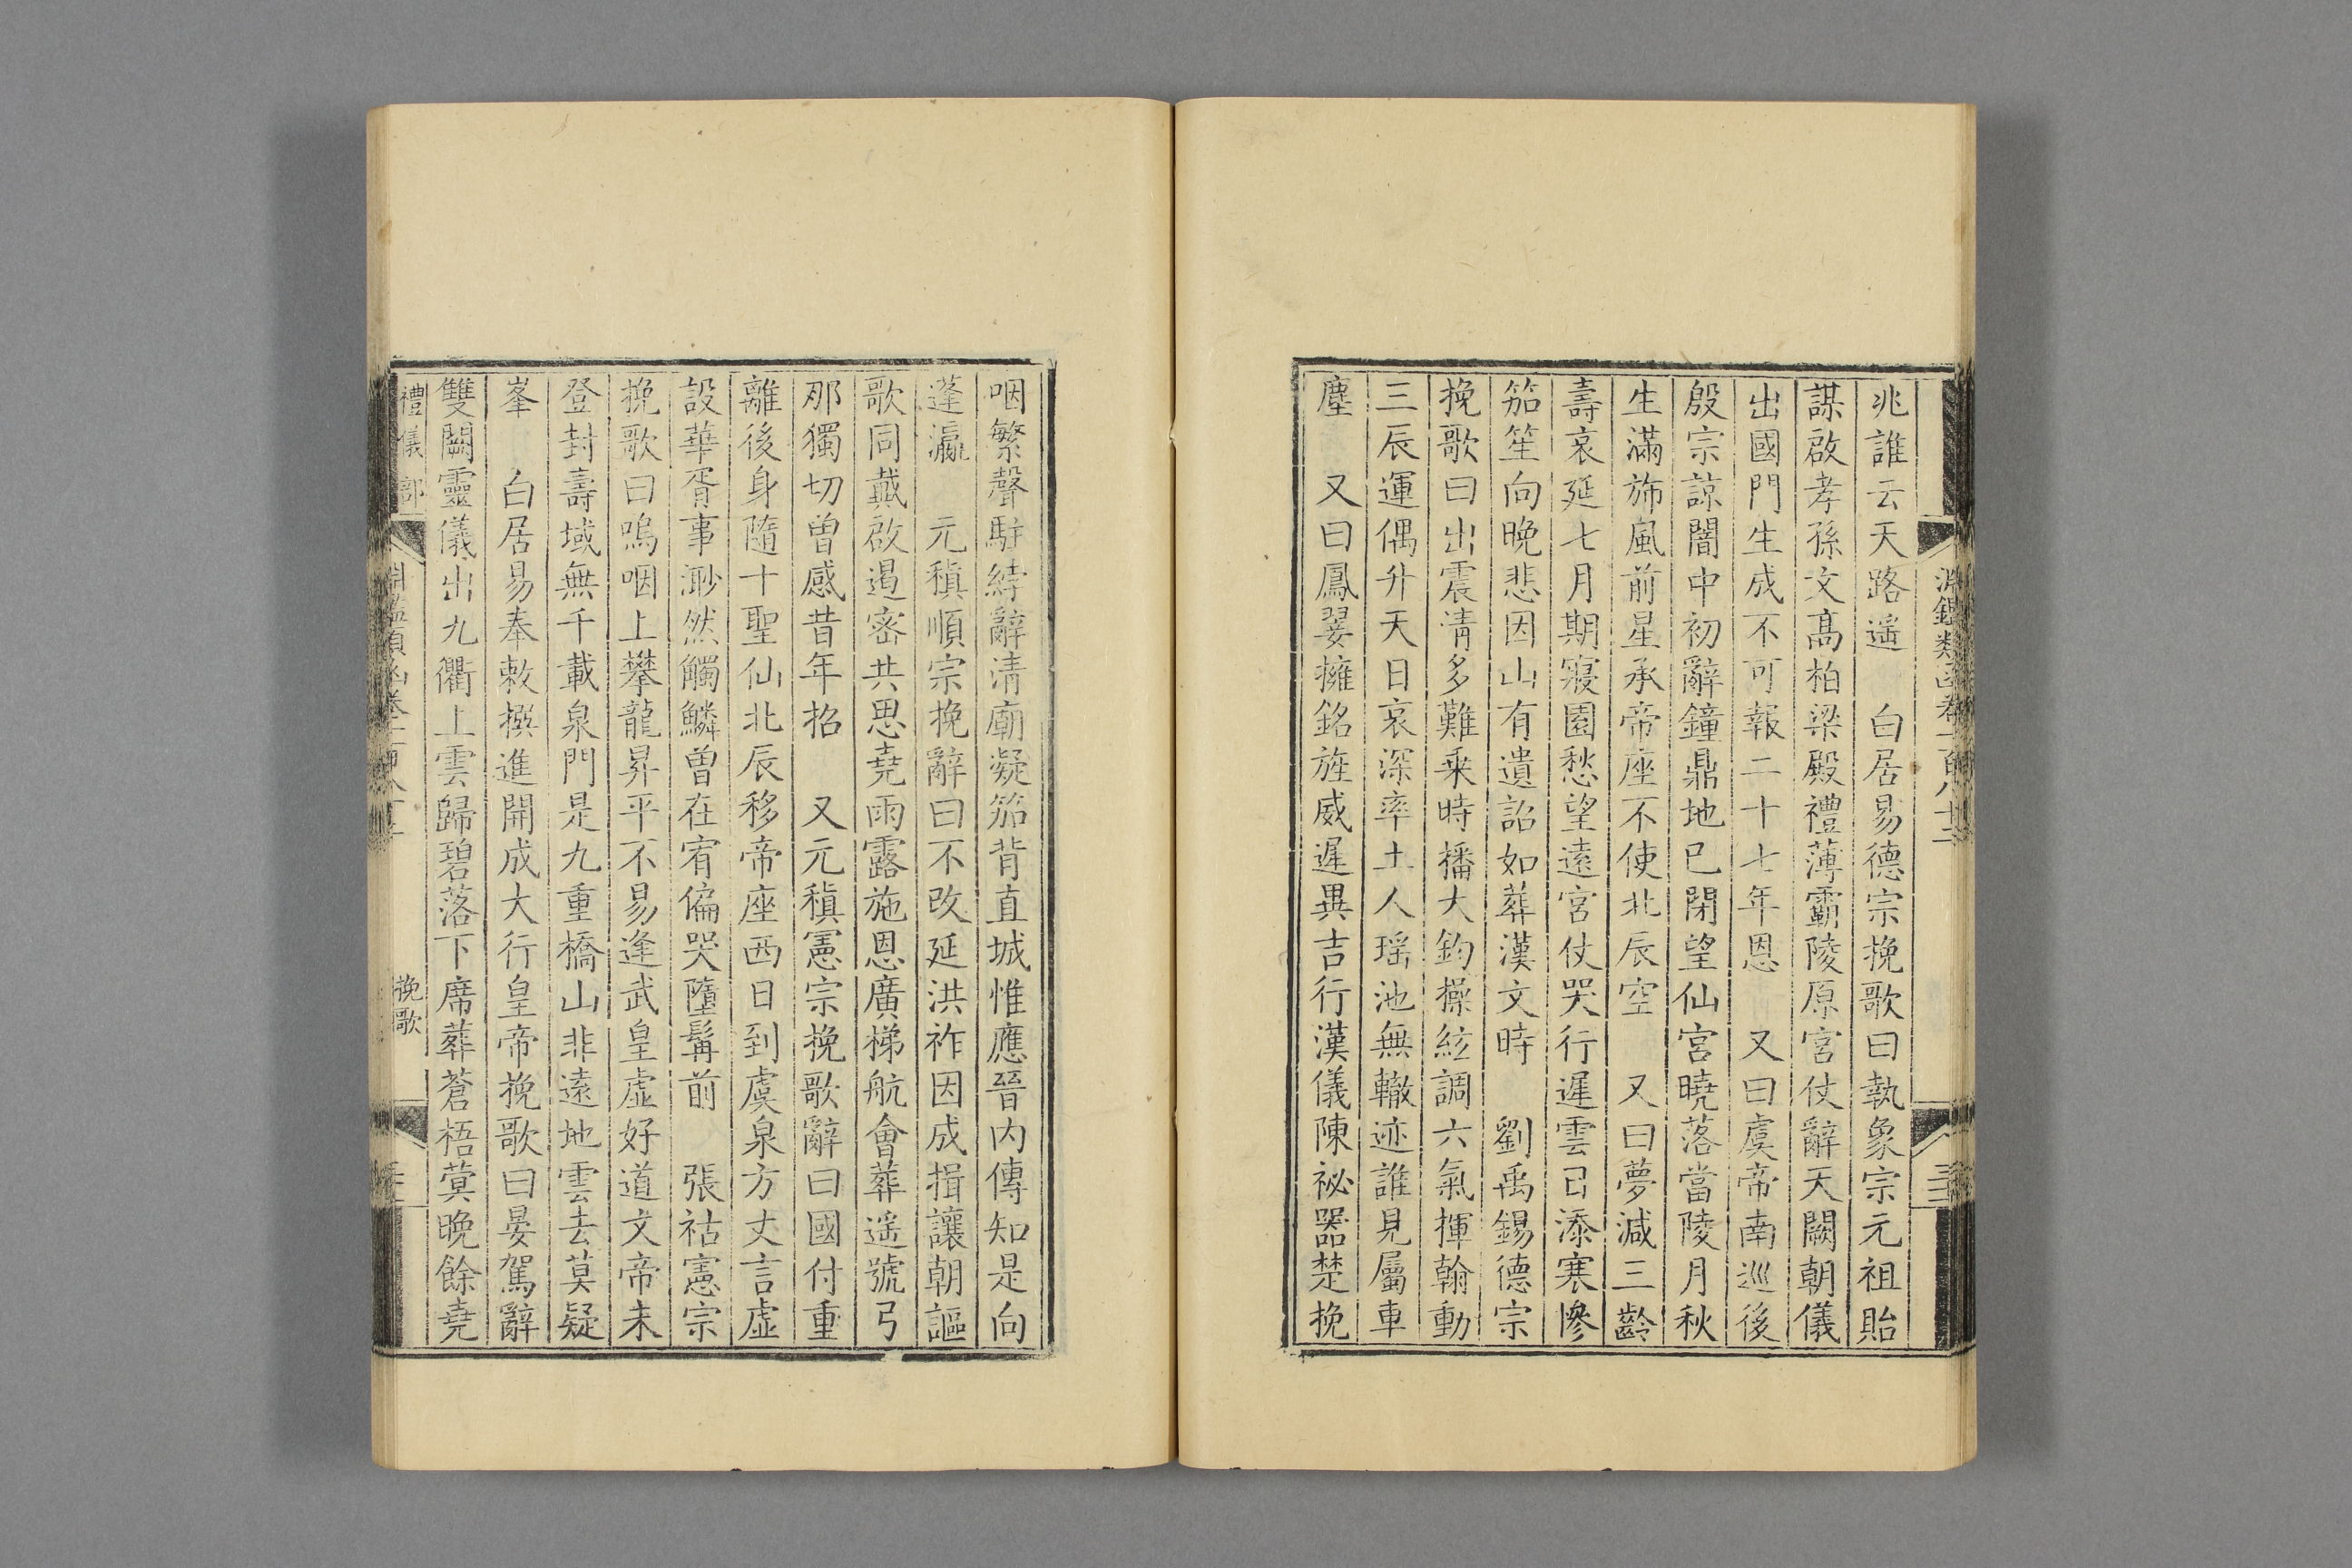 淵鑑類函卷一百八十二
兆誰云天路遥　白居易德宗挽歌曰執象宗元祖貽
謀啟孝孫文髙柏梁殿禮薄霸陵原宮仗辭天闕朝儀
出國門生成不可報二十七年恩　又曰虞帝南巡後
殷宗諒闇中初辭鐘鼎地已閉望仙宮曉落當陵月秋
生滿斾風前星承帝座不使北辰空　又曰夢減三齡
壽哀延七月期寢園愁望遠宮仗哭行遲雲日添寒慘
笳笙向晚悲因山有遺詔如葬漢文時　劉禹錫德宗
挽歌曰出震清多難乗時播大鈞操絃調六氣揮翰動
三辰運偶升天日哀深率土人瑶池無轍迹誰見屬車
塵　又曰鳳翣擁銘旌威遲異吉行漢儀陳祕器楚挽
咽繁聲駐綍辭清廟凝笳背直城惟應晉内傳知是向
蓬瀛　元稹順宗挽辭曰不改延洪祚因成揖讓朝謳
歌同戴啟遏密共思堯雨露施恩廣梯航會葬遥號弓
那獨切曽感昔年招　又元稹憲宗挽歌辭曰國付重
離後身隨十聖仙北辰移帝座西日到虞泉方丈言虚
設華胥事渺然觸鱗曽在宥偏哭墮髯前　張祜憲宗
挽歌曰嗚咽上攀龍昇平不易逢武皇虚好道文帝未
登封壽域無千載泉門是九重橋山非遠地雲去莫疑
峯　白居易奉敕撰進開成大行皇帝挽歌曰晏駕辭
雙闕靈儀出九衢上雲歸碧落下席葬蒼梧蓂晚餘堯
禮儀部　挽歌